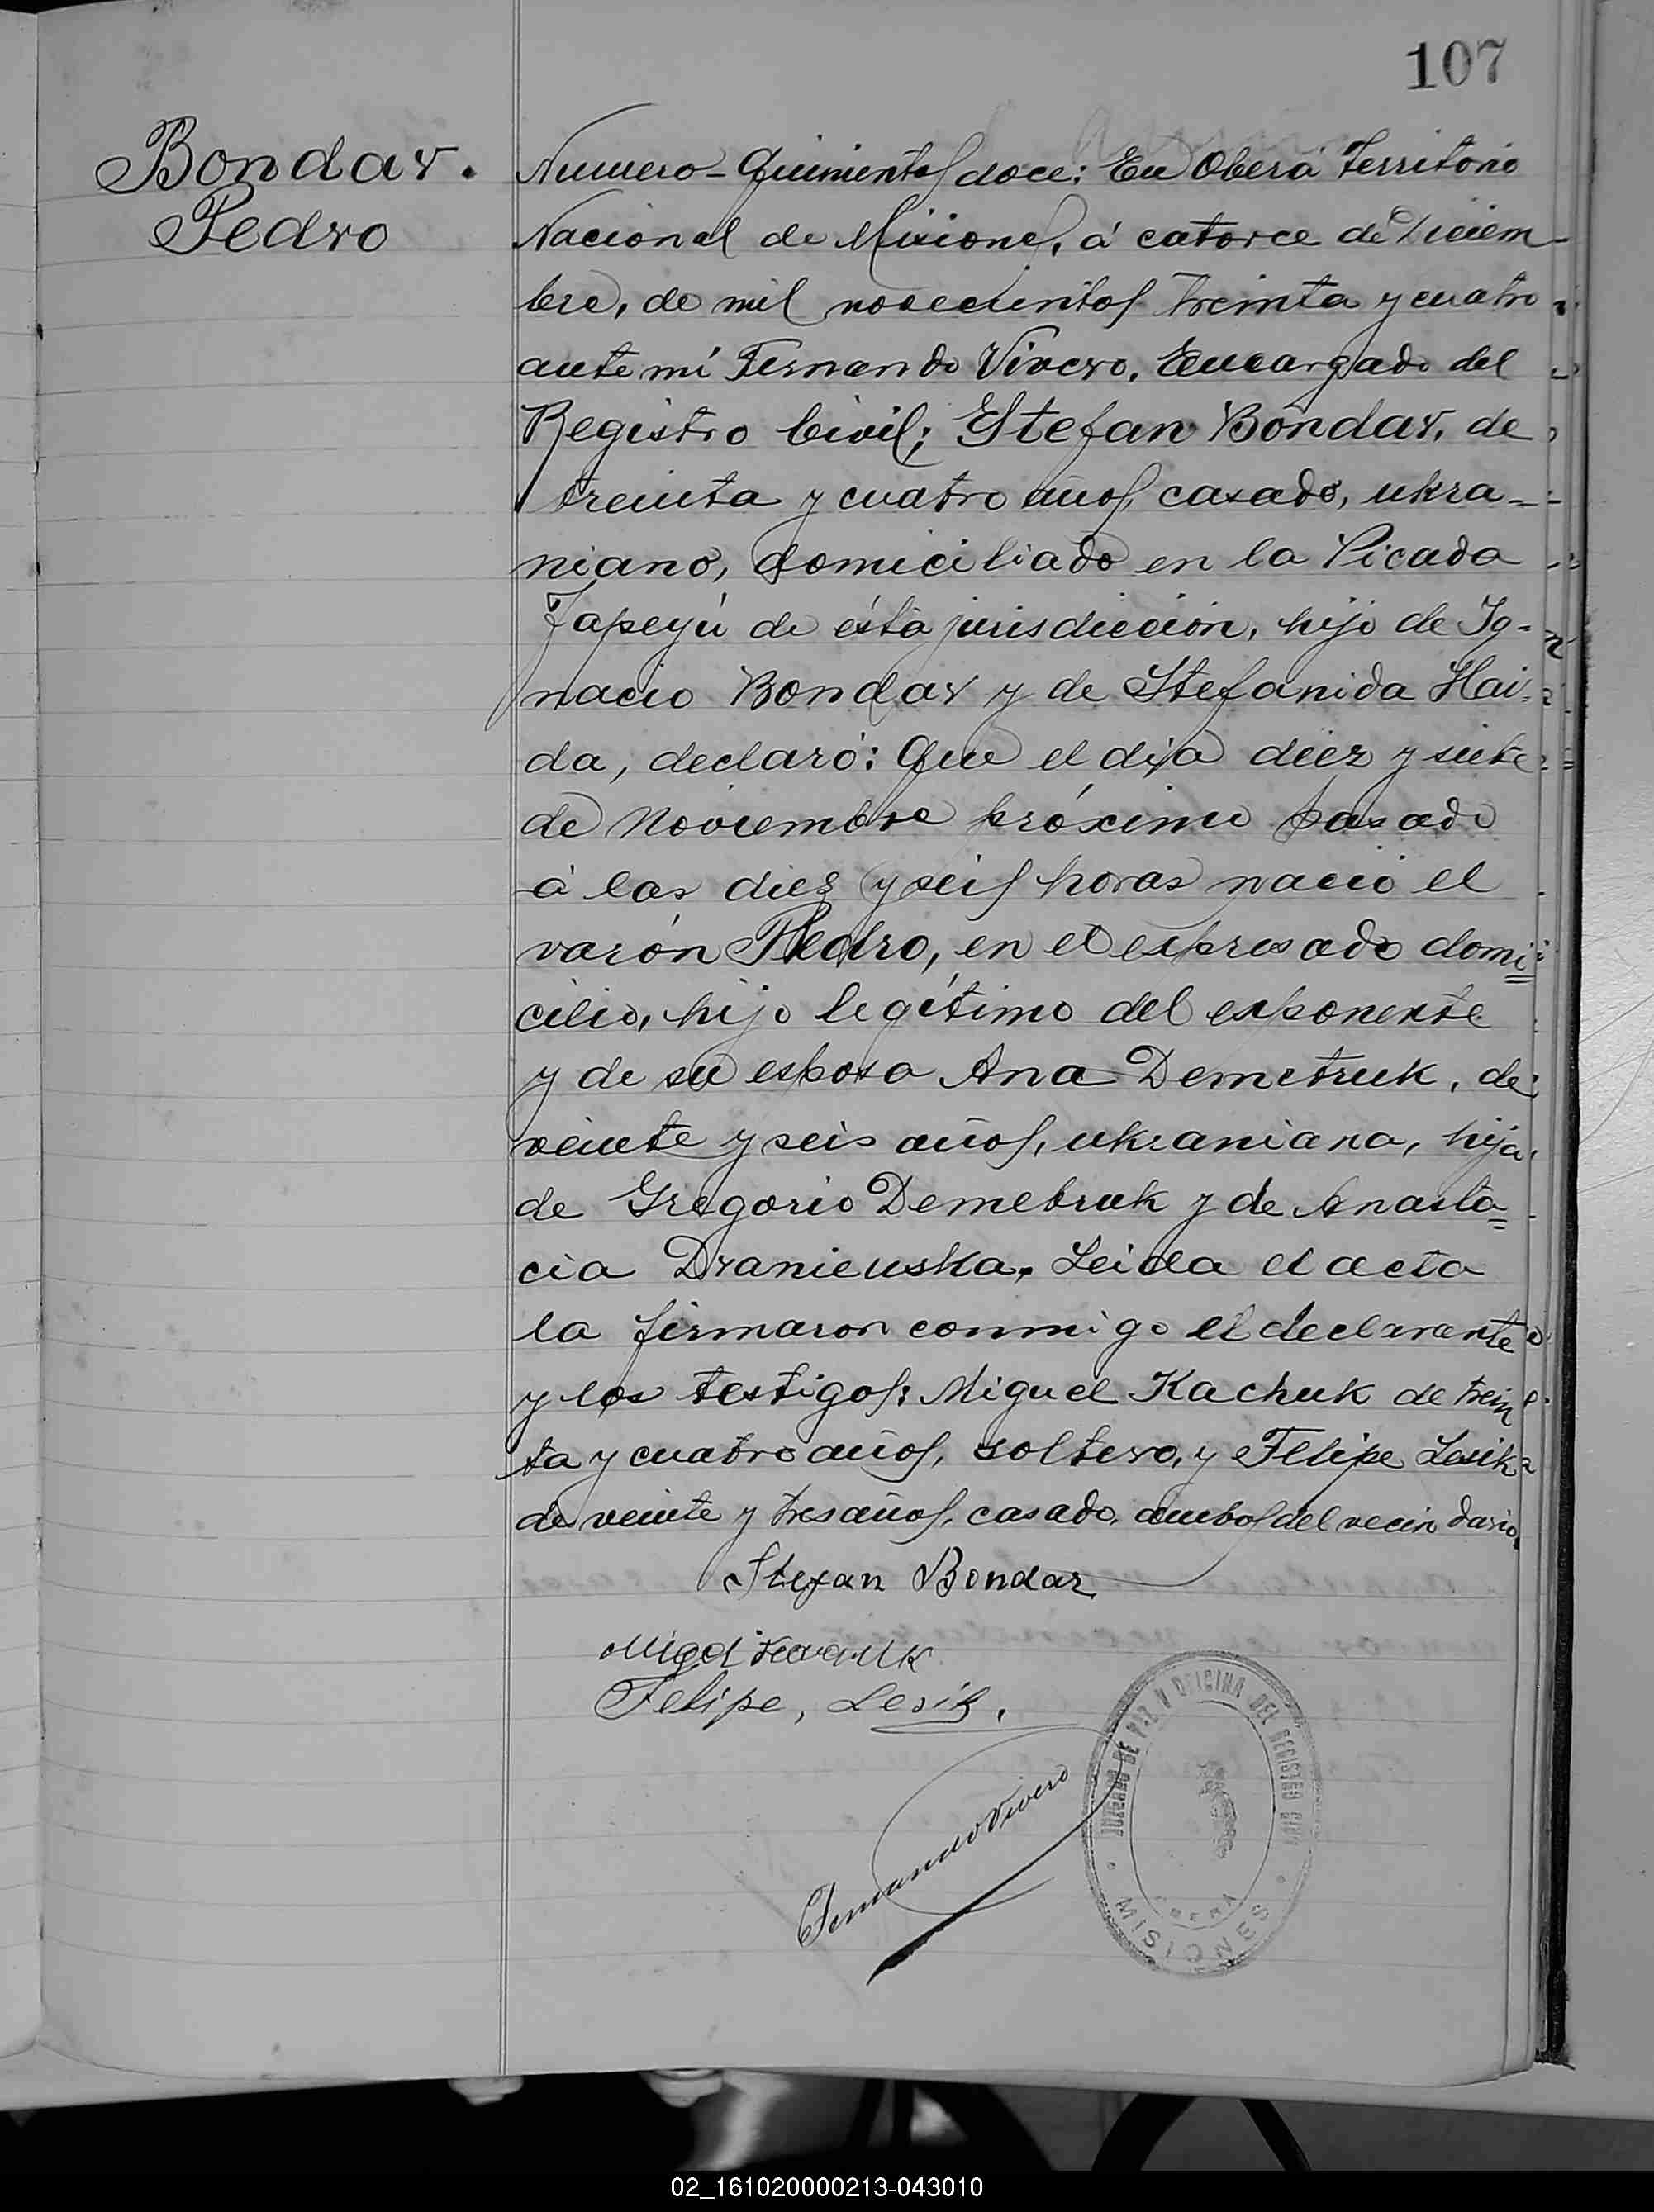 107
Bondar.
Pedro
Numero - Quinientos doce: En Oberá Territorio
Nacional de Misiones, á catorce de Diciem-
bre, de mil novecientos treinta y cuatro
ante mí Fernando Vivero, Encargado del
Registro Civil; Stefan Bondar, de
treinta y cuatro años, casado, ukra-
niano, domiciliado en la Picada
Yapeyú de ésta jurisdicción, hijo de Ig-
nacio Bondar y de Stefanida Hai-
da, declaró: Que el día diez y siete
de Noviembre próximo pasado
á las diez y seis horas nació el
varón Pedro, en el expresado domi
cilio, hijo legítimo del exponente
y de su esposa Ana Demetruk, de
veinte y seis años, ukraniana, hija
de Gregorio Demetruk y de Anasta=
cia Draniewska. Leida el acta
la firmaron conmigo el declarante
y los testigos: Miguel Kachuk de trein
ta y cuatro años, soltero, y Felipe Lesik
de veinte y tres años, casado, ambos del vecindario.
Stefan Bondar
Felipe, Lesik.
Fernando Vivero
JUZGADO DE PAZ Y OFICINA DEL REGISTRO CIVIL
OBERA
MISIONES
02_161020000213-043010